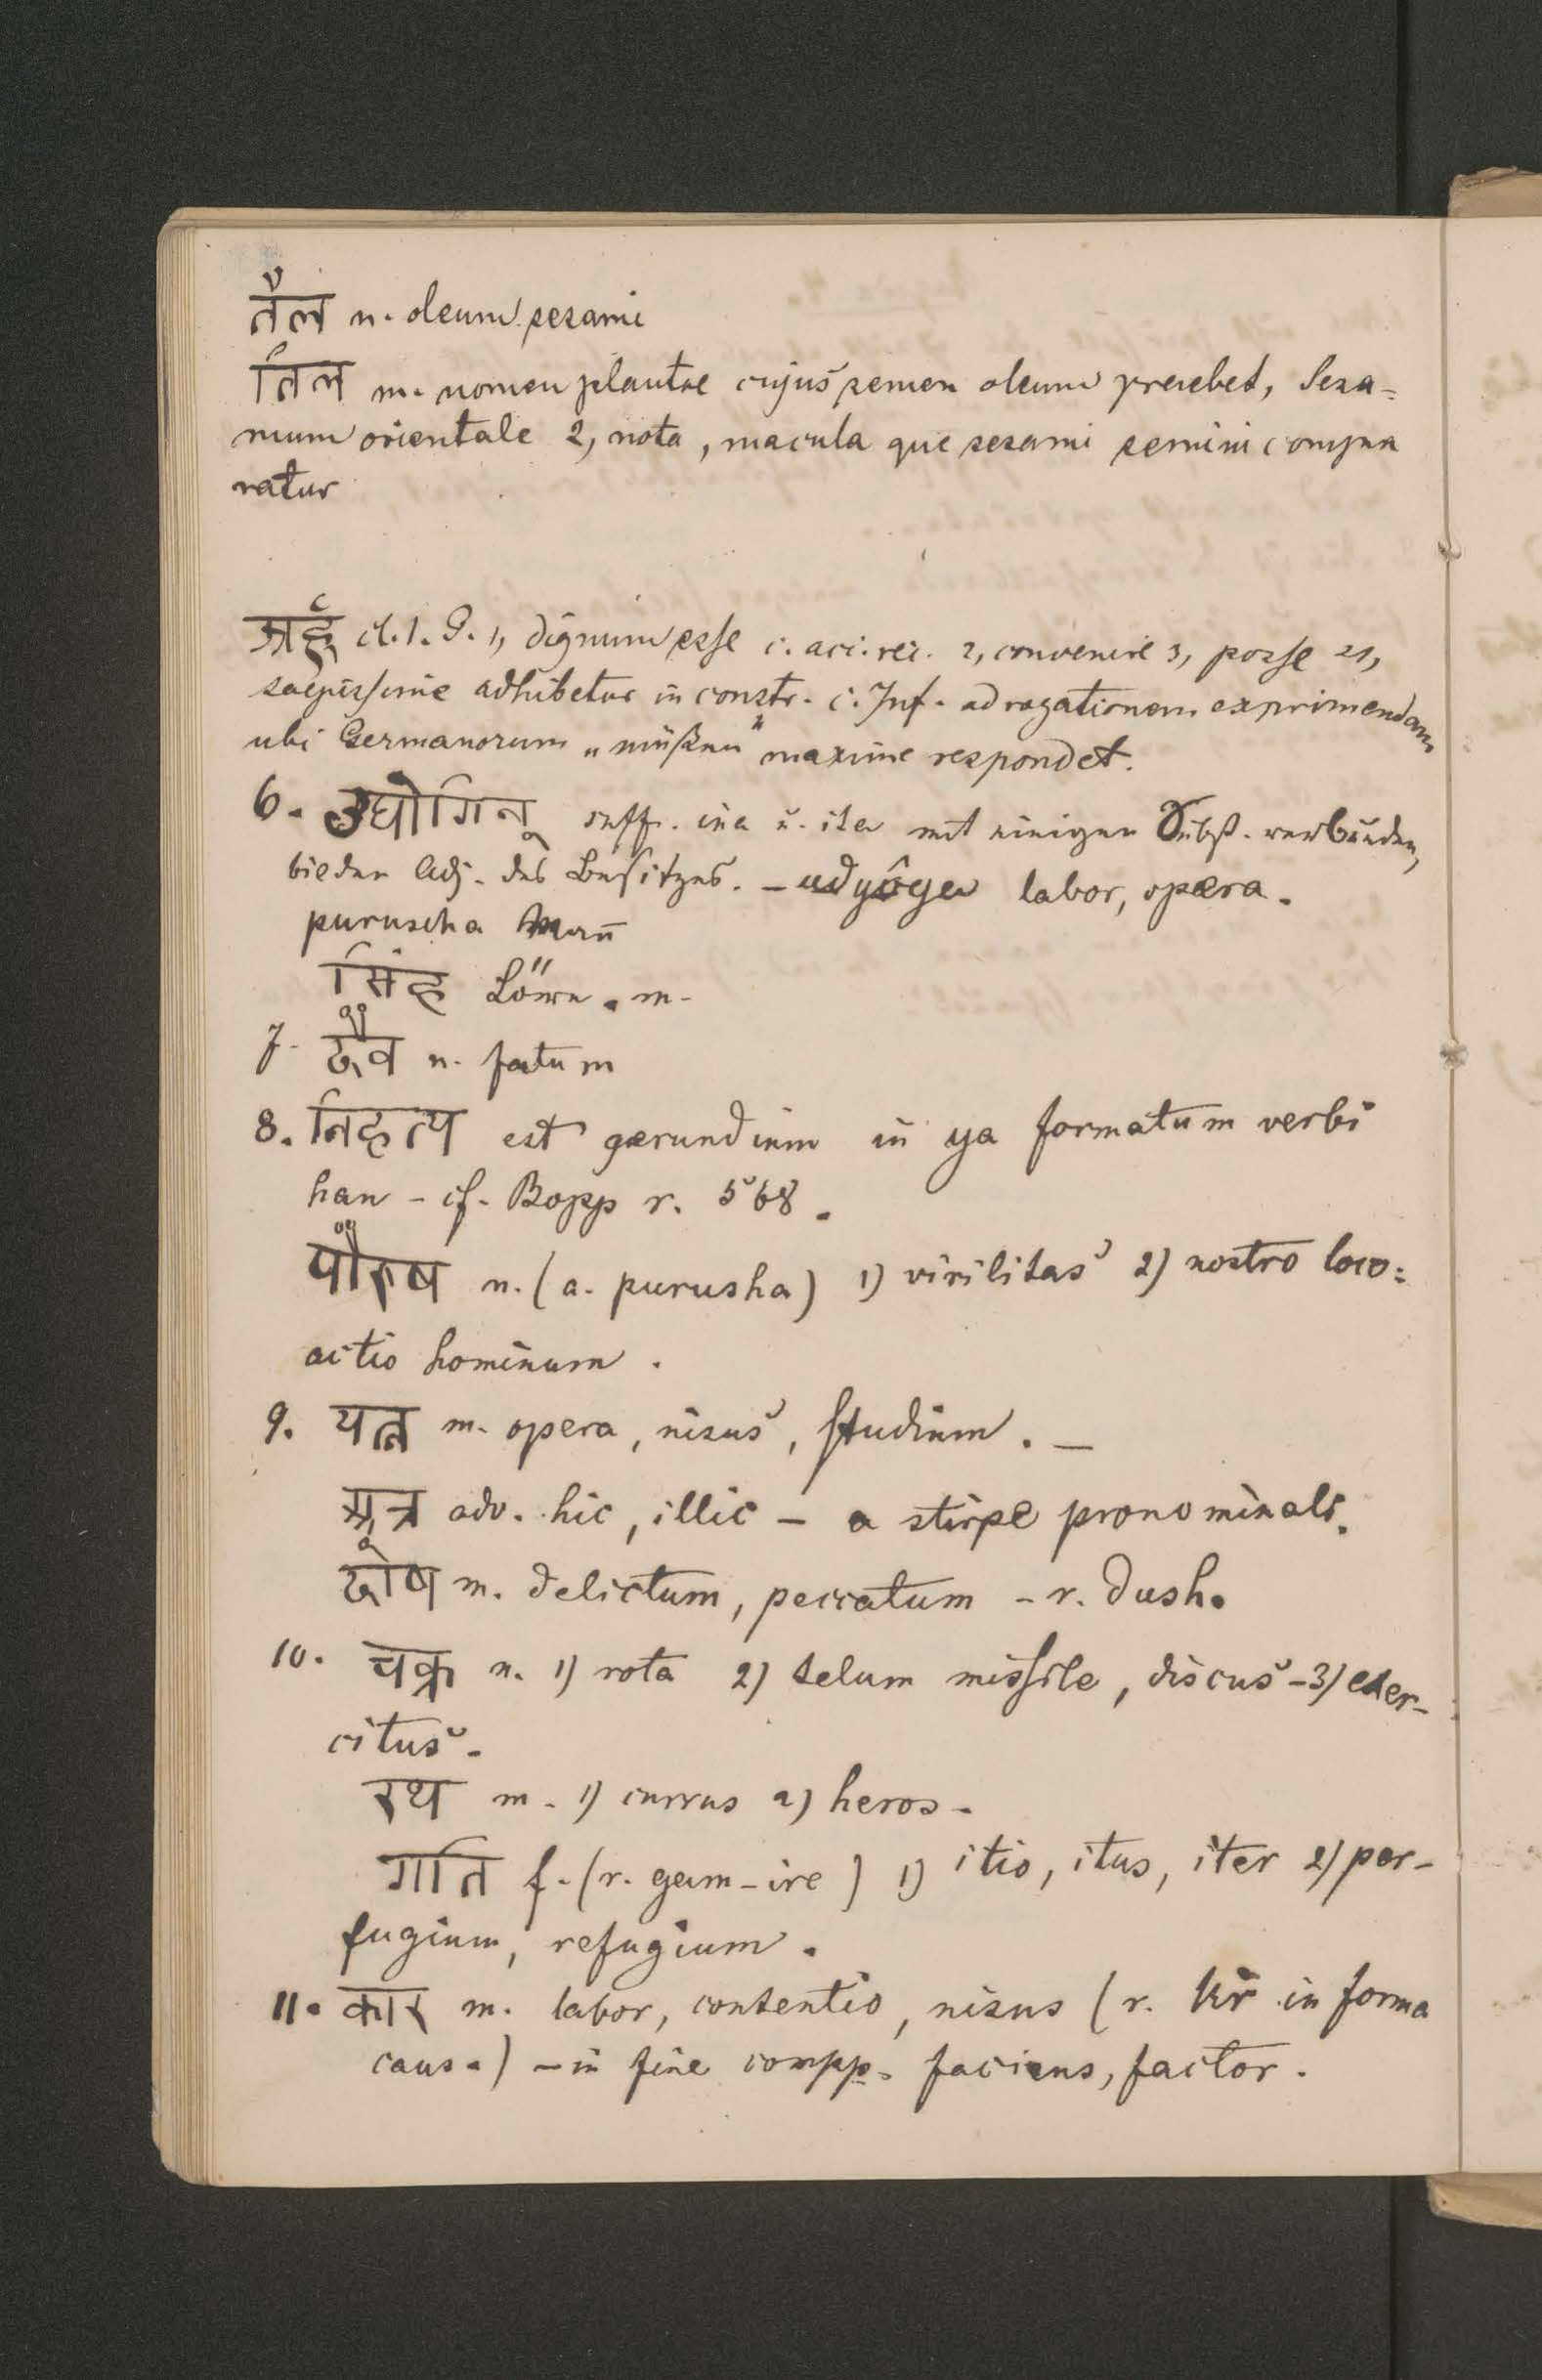 तैल n. oleum sesami
तिल m. nomen plantae cujus semen oleum praebet, Sesa=
mum orientale 2, nota, macula que sesami semini compa
ratur
अर्ह् cl. 1. P. 1, dignum esse c. acc. rei. 2, convenire 3, posse 4,
saepissime adhibetur in constr. c. Inf. ad rogationem exprimendam
ubi Germanorum „müßen" maxime respondet.
6. उद्योगिन् suff. ina u. ita mit einigen Subst. verbunden,
bilden Adj. des Besitzes. – udyôga labor, opera.
puruscha Mann
सिंह Löwe. m.
7. दैव n. fatum
8. निहत्य est gerundium in ya formatum verbi
han – cf. Bopp r. 568.
पौरुष n. (a. purusha) 1) virilitas 2) nostro loco:
actio hominum.
9. यत्न m. opera, nisus, studium. –
अत्र adv. hic, illic – a stirpe pronominali.
दोष m. delictum, peccatum – r. dush.
10. चक्र n. 1) rota 2) telum missile, discus – 3) exer-
citus.
रथ m. 1) currus 2) heros.
गति f. (r. gam – ire) 1) itio, itus, iter 2) per-
fugium, refugium.
11. कार m. labor, contentio, nisus (r. kr in forma
caus.) – in fine compp. faciens, factor.